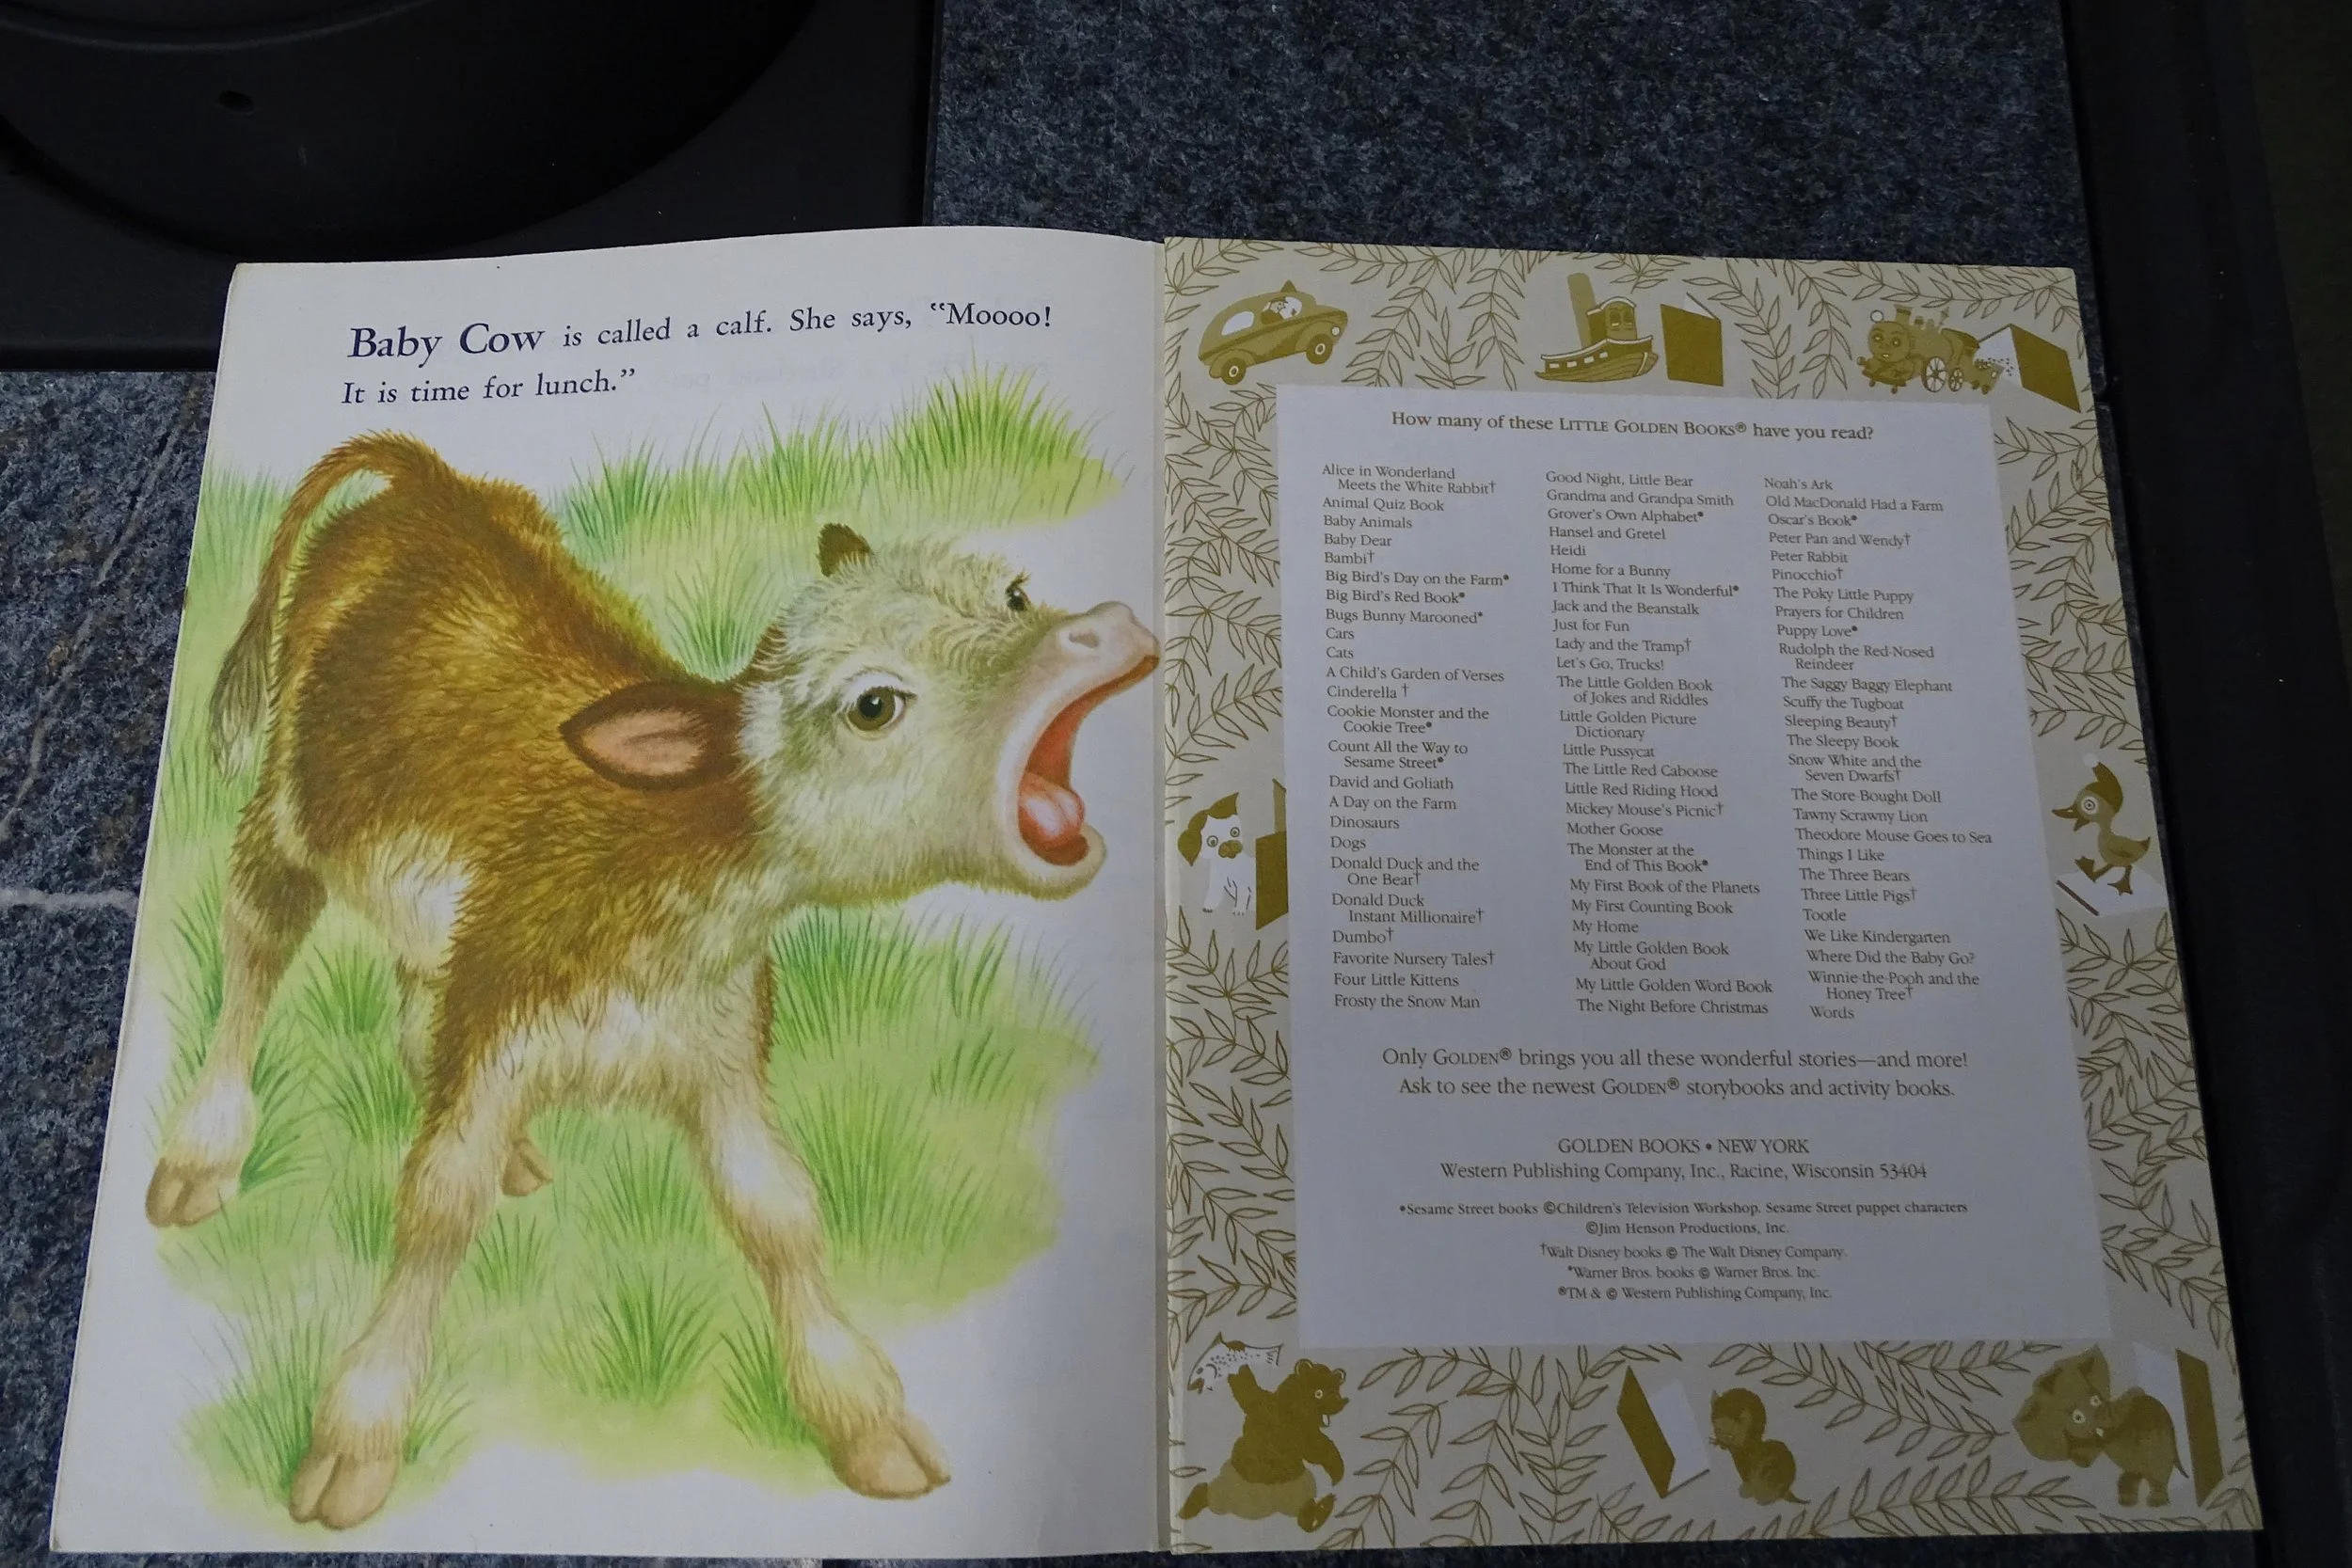 Baby Cow is called a calf. She says, “Moooo!
It is time for lunch.”
How many of these LITTLE GOLDEN BOOKS® have you read?
Alice in Wonderland
Meets the White Rabbit†
Animal Quiz Book
Baby Animals
Baby Dear
Bambi†
Big Bird's Day on the Farm•
Big Bird's Red Book•
Bugs Bunny Marooned*
Cars
Cats
A Child's Garden of Verses
Cinderella †
Cookie Monster and the
Cookie Tree•
Count All the Way to
Sesame Street•
David and Goliath
A Day on the Farm
Dinosaurs
Dogs
Donald Duck and the
One Bear†
Donald Duck
Instant Millionaire†
Dumbo†
Favorite Nursery Tales†
Four Little Kittens
Frosty the Snow Man
Good Night, Little Bear
Grandma and Grandpa Smith
Grover's Own Alphabet•
Hansel and Gretel
Heidi
Home for a Bunny
I Think That It Is Wonderful•
Jack and the Beanstalk
Just for Fun
Lady and the Tramp†
Let's Go, Trucks!
The Little Golden Book
of Jokes and Riddles
Little Golden Picture
Dictionary
Little Pussycat
The Little Red Caboose
Little Red Riding Hood
Mickey Mouse's Picnic†
Mother Goose
The Monster at the
End of This Book•
My First Book of the Planets
My First Counting Book
My Home
My Little Golden Book
About God
My Little Golden Word Book
The Night Before Christmas
Noah's Ark
Old MacDonald Had a Farm
Oscar's Book•
Peter Pan and Wendy†
Peter Rabbit
Pinocchio†
The Poky Little Puppy
Prayers for Children
Puppy Love•
Rudolph the Red-Nosed
Reindeer
The Saggy Baggy Elephant
Scuffy the Tugboat
Sleeping Beauty†
The Sleepy Book
Snow White and the
Seven Dwarfs†
The Store-Bought Doll
Tawny Scrawny Lion
Theodore Mouse Goes to Sea
Things I Like
The Three Bears
Three Little Pigs†
Tootle
We Like Kindergarten
Where Did the Baby Go?
Winnie-the-Pooh and the
Honey Tree†
Words
Only GOLDEN® brings you all these wonderful stories—and more!
Ask to see the newest GOLDEN® storybooks and activity books.
GOLDEN BOOKS • NEW YORK
Western Publishing Company, Inc., Racine, Wisconsin 53404
•Sesame Street books ©Children's Television Workshop. Sesame Street puppet characters
©Jim Henson Productions, Inc.
†Walt Disney books © The Walt Disney Company.
*Warner Bros. books © Warner Bros. Inc.
®TM & © Western Publishing Company, Inc.